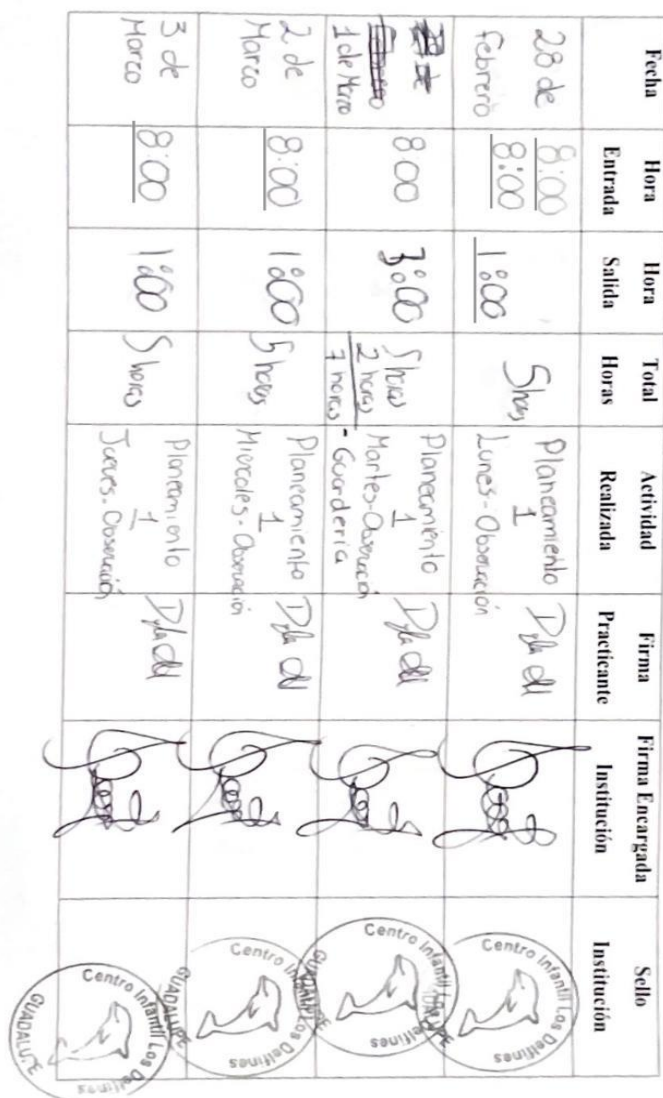 Fecha
Hora
Entrada
Hora
Salida
Total
Horas
Actividad
Realizada
Firma
Practicante
Firma Encargada
Institución
Sello
Institución
28 de
febrero
8:00
8:00
1:00
5 horas
Planeamiento
1
Lunes-Observación
Centro Infantil Los Delfines
1 de Marzo
8:00
3:00
5 horas
2 horas
7 horas
Planeamiento
1
Martes-Observación
- Guardería
Centro Infantil Los
GUADALUPE
2 de
Marco
8:00
1:00
5 horas
Planeamiento
1
Miercoles-Observación
Centro Infantil Los Delfines
GUADALUPE
3 de
Marco
8:00
1:00
5 horas
Planeamiento
1
Jueves-Observación
Centro Infantil Los Delfines
GUADALUPE